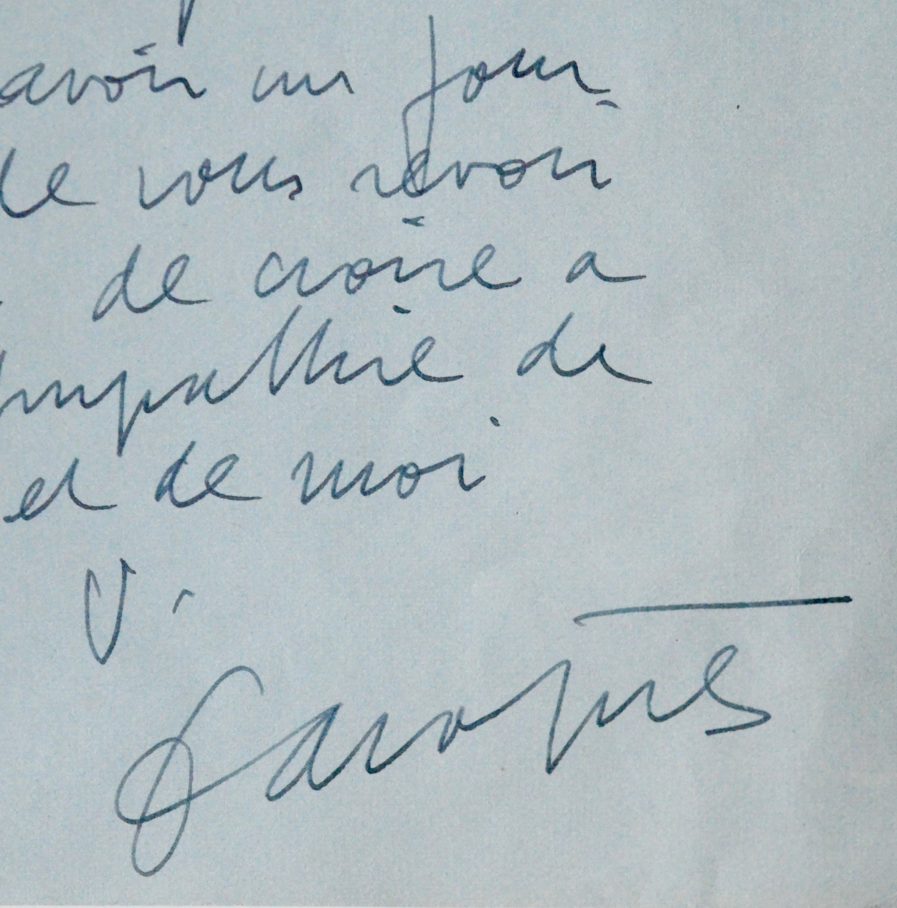 avoir un jour
de vous revoir
de croire a
mpathie de
et de moi
V.